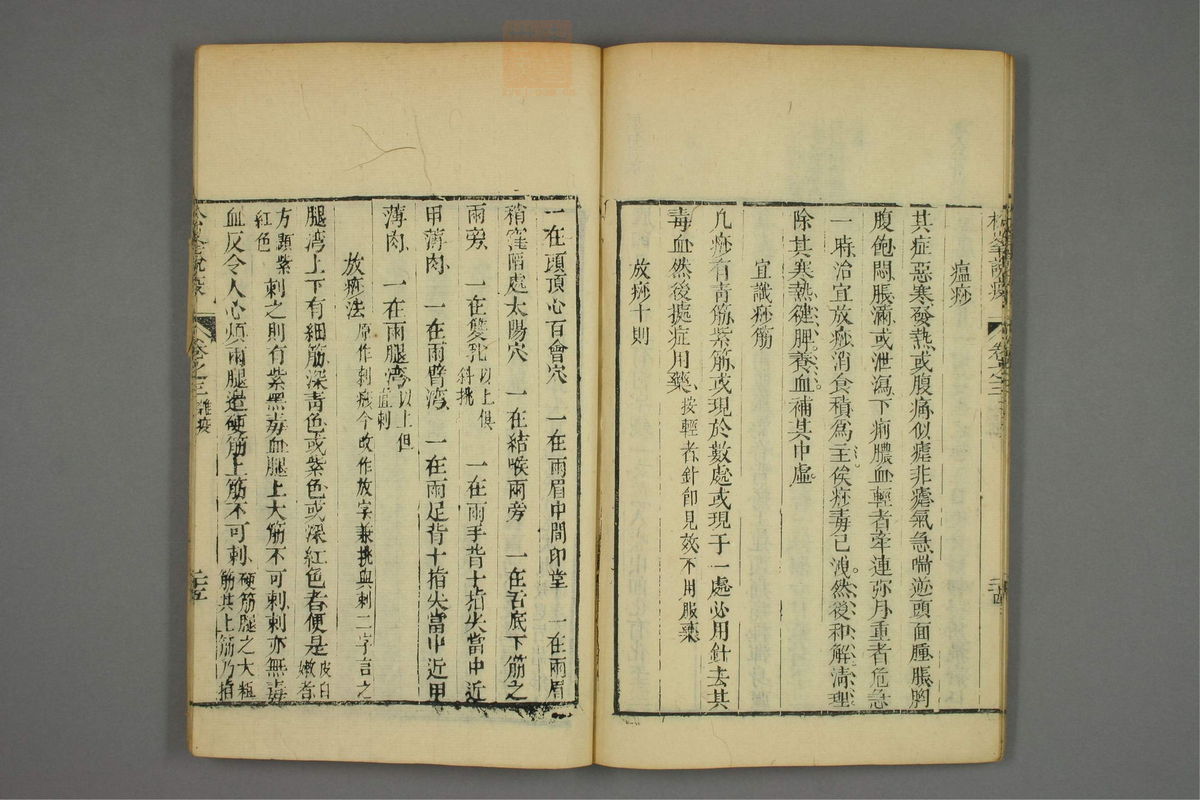 瘟痧
其症惡寒發熱或腹痛似瘧非瘧氣急喘逆頭面腫脹胸
腹飽悶脹滿或泄瀉下痢膿血輕者牽連彌月重者危急
一時治宜放痧消食積為主俟痧毒已洩然後和解清理
除其寒熱健脾養血補其中虛
宜識痧筋
凡痧有青筋紫筋或現於數處或現于一處必用針去其
毒血然後據症用藥按輕者針卽見效不用服藥
放痧十則
一在頭頂心百會穴 一在兩眉中間印堂 一在兩眉
稍窪陷處太陽穴 一在結喉兩旁 一在舌底下筋之
兩旁 一在雙乳以上俱斜挑 一在兩手背十指尖當中近
甲薄肉 一在兩臂灣 一在兩足背十指尖當中近甲
薄肉 一在兩腿灣以上但直刺
放痧法原作刺痧今改作放字兼挑與刺二字言之
腿灣上下有細筋深青色或紫色或深紅色者便是皮白嫩者
方顯紫紅色刺之則有紫黑毒血腿上大筋不可刺刺亦無毒
血反令人心煩兩腿邊硬筋上筋不可刺硬筋腿之大粗筋其上筋乃指
松峯說疫
卷之三
雜疫
二十五